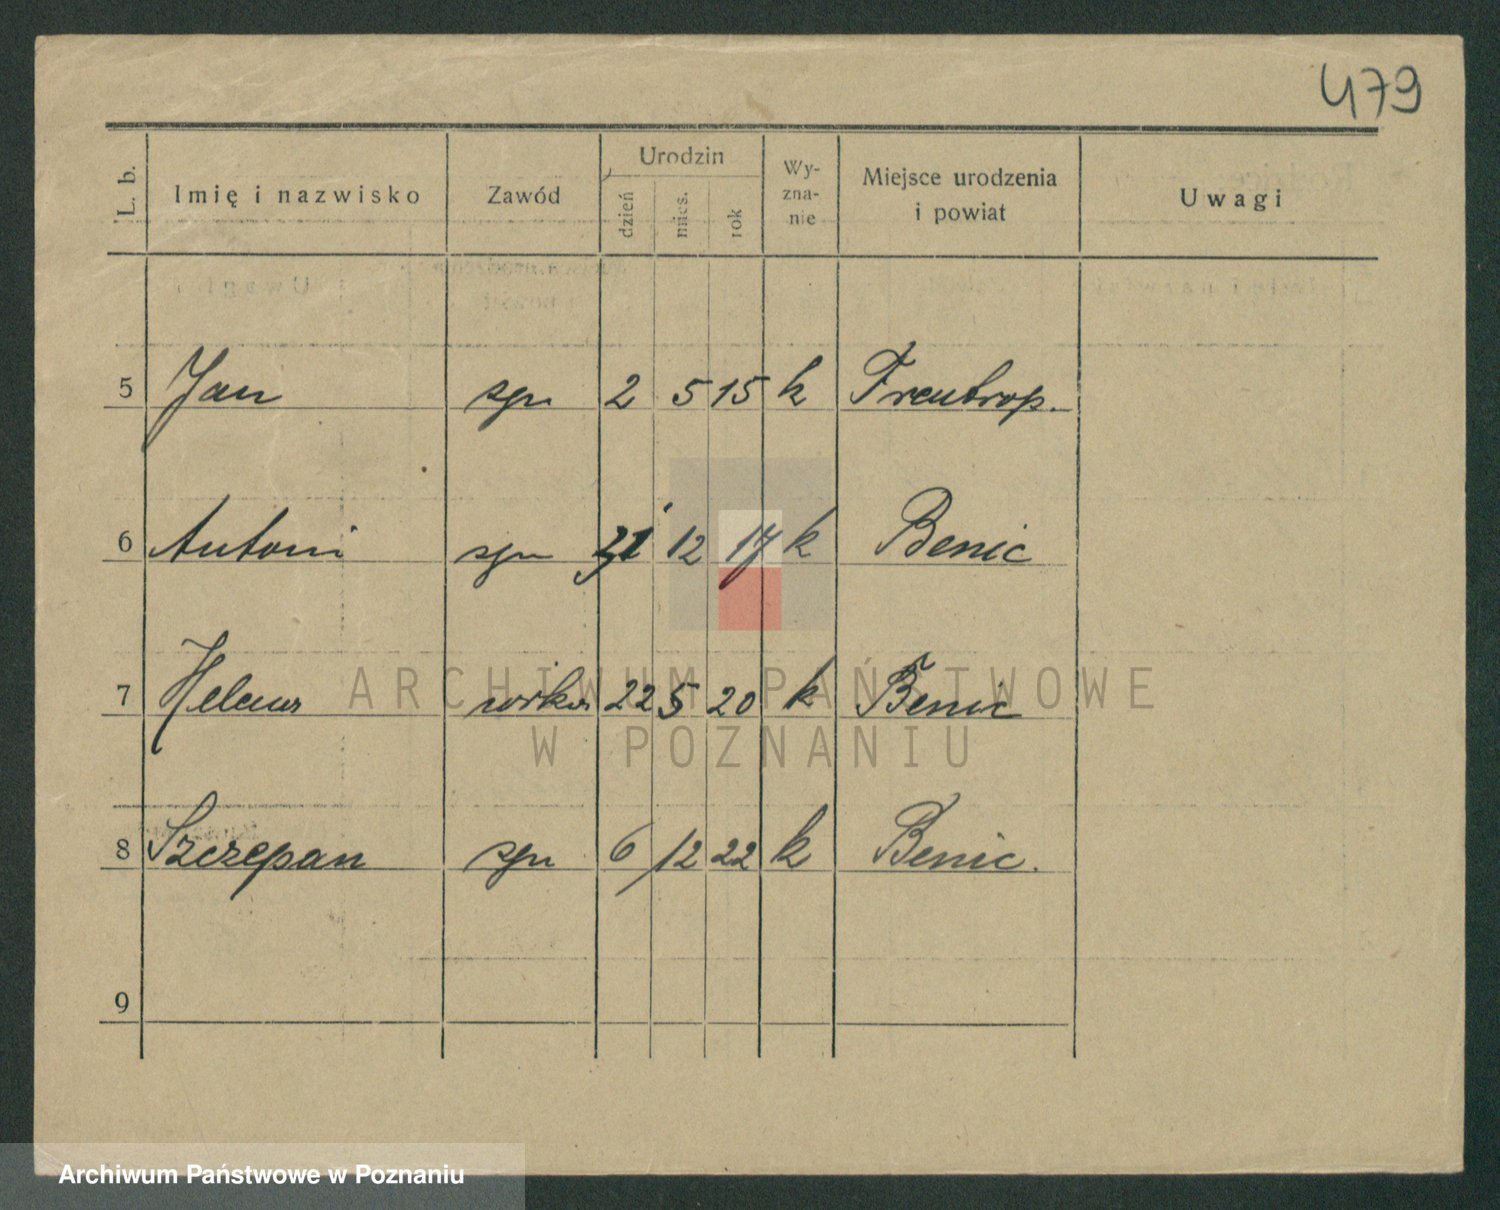 479
L. b. Imię i nazwisko Zawód Urodzin dzień mies. rok Wyzna-nie Miejsce urodzenia i powiat Uwagi
5 Jan syn 2 5 15 k Frentrop.
6 Antoni syn 12 17 k Benic
7 Helena córka 22 5 20 k Benic
8 Szczepan syn 6 12 22 k Benic.
9
ARCHIWUM PAŃSTWOWE
W POZNANIU
Archiwum Państwowe w Poznaniu